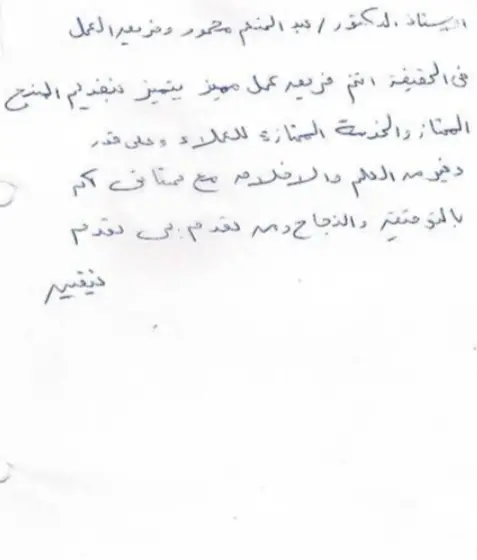 الاستاذ الدكتور / عبد المنعم محمود وفريق العمل
فى الحقيقة انتم فريق عمل مميز يتميز بتقديم المنتج
الممتاز والخدمة الممتازة للعملاء وعلى قدر
وفير من العلم والاخلاق مع تمنياتى لكم
بالتوفيق والنجاح ومن تقدم الى تقدم